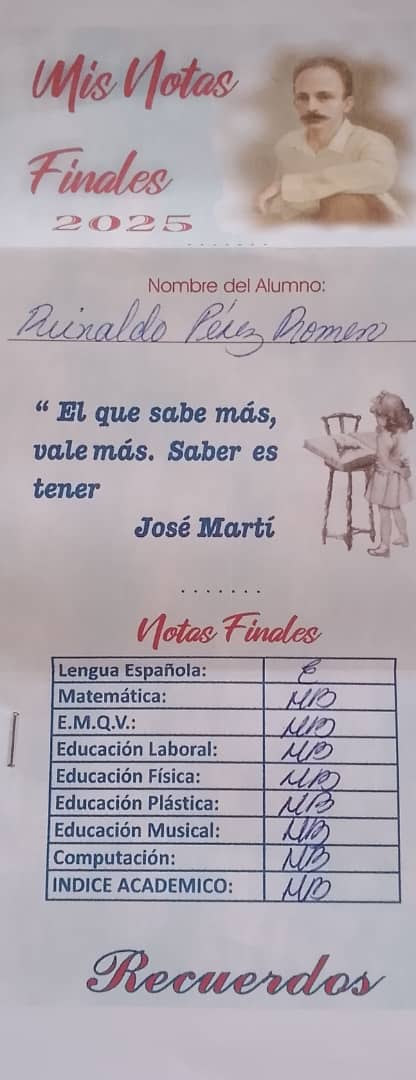 Mis Notas
Finales
2025
.......
Nombre del Alumno:
Reinaldo Pérez Romero
“ El que sabe más,
vale más. Saber es
tener
José Martí
.......
Notas Finales
Lengua Española: E
Matemática: MB
E.M.Q.V.: MB
Educación Laboral: MB
Educación Física: MB
Educación Plástica: MB
Educación Musical: MB
Computación: MB
INDICE ACADEMICO: MB
Recuerdos